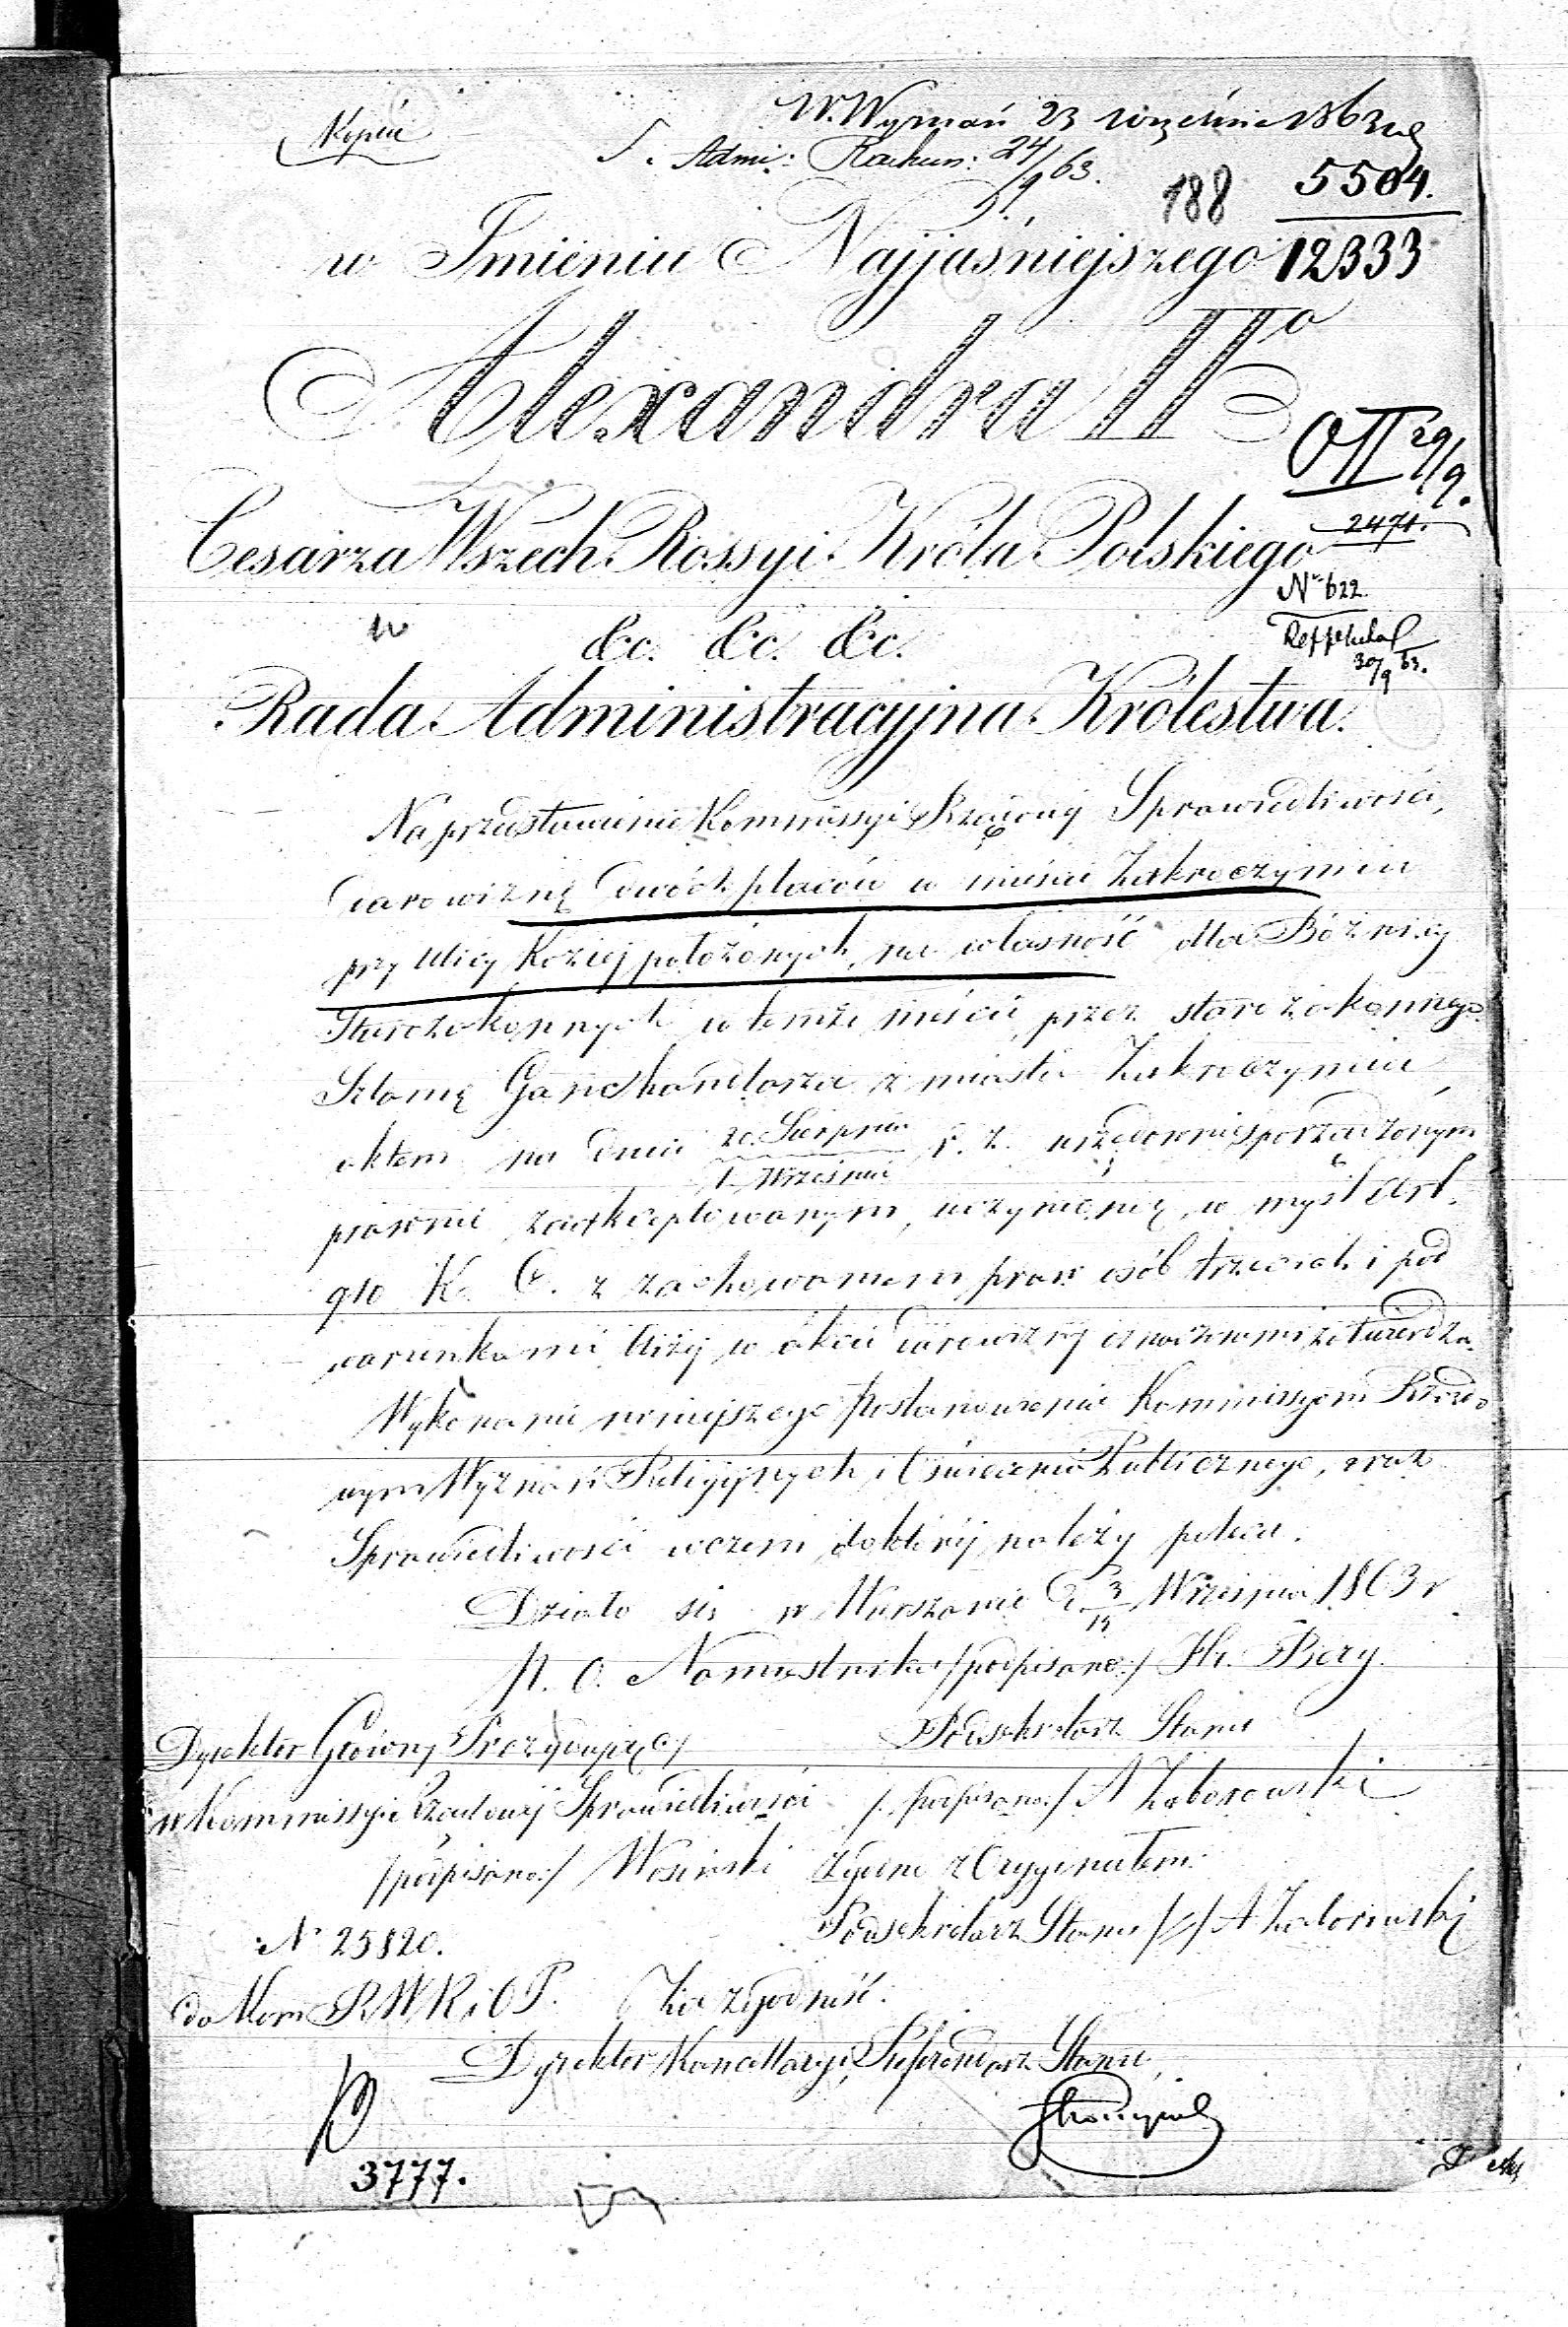 Kopia
W. Wyznań 23 września 1863
S. Admi: Rachun: 24/9 63.
188
5504.
12333
w Imieniu Najjaśniejszego
Alexandra IIo
OII 29/9.
Cesarza Wszech Rossyi Króla Polskiego
2471.
No 622
30/9 63.
w
&c. &c. &c.
Rada Administracyjna Królestwa.
Na przedstawienie Kommissyi Rządowéj Sprawiedliwości,
darowiznę dwóch placów w mieście Zakroczymiu
przy ulicy Koziej położonych, na własność dla Bóżnicy
Starozakonnych w temże mieście, przez starozakonnego
Szlomę z miasta Zakroczymia
aktem na dniu 20 Sierpnia / 1 Września r. z. urzędownie sporządzonym
prawnie zaakceptowanym, uczynioną, w myśl Art.
910 K. C. z zachowaniem praw osób trzecich i pod
warunkami bliżéj w akcie darowizny oznaczonemi zatwierdza.
Wykonanie niniejszego Postanowienia Kommissyom Rządo-
wym Wyznań Religijnych i Oświecenia Publicznego, oraz
Sprawiedliwości w czem do któréj należy poleca.
Działo się w Warszawie d. 3/15 Września 1863 r.
p. o. Namiestnika /podpisano:/ Hr: Berg.
Dyrektor Główny Prezydujący
Podsekretarz Stanu
w Kommissyi Rządowéj Sprawiedliwości
/podpisano:/ A Zaborowski
/podpisano:/ Wosiński
Zgodno z Oryginałem:
Podsekretarz Stanu /-/ A Zaborowski
N 25820.
do Kom R W R i O P.
Za zgodność.
Dyrektor Kancellaryi, Referendarz Stanu,
3777.